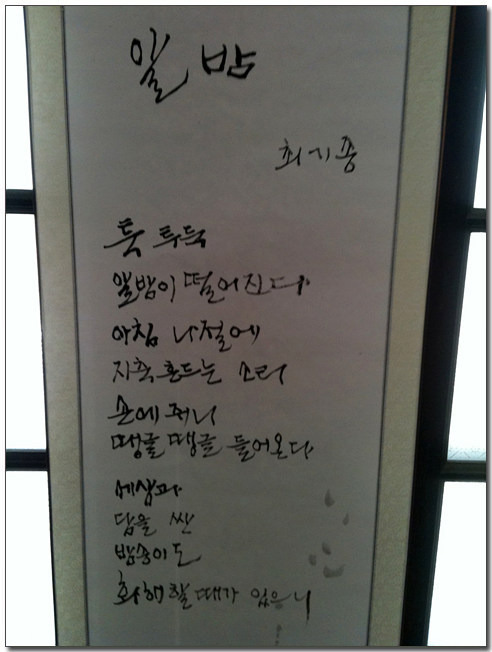 알 밤
최기종
툭 투둑
알밤이 떨어진다
아침 나절에
지축 흔드는 소리
손에 쥐니
땡글땡글 들어온다
세상과
담을 싼
밤송이도
화해할 때가 있으니